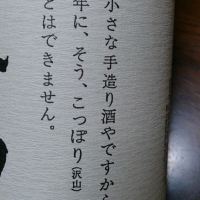 小さな手造り酒やですから
年に、そう、こっぽり(沢山)
とはできません。